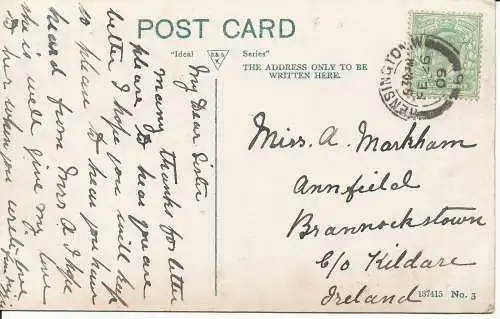 POST CARD
"Ideal Series"
THE ADDRESS ONLY TO BE
WRITTEN HERE.
KENSINGTON.W
FE 26
09
My Dear Sister
many thanks for letter
please to hear you are
better I hope you will keep
so please to hear you have
heard from Mrs A I hope
she is well give my love
to her when you write love
Miss. A. Markham
Annfield
Brannockstown
C/o Kildare
Ireland
137415 No. 3